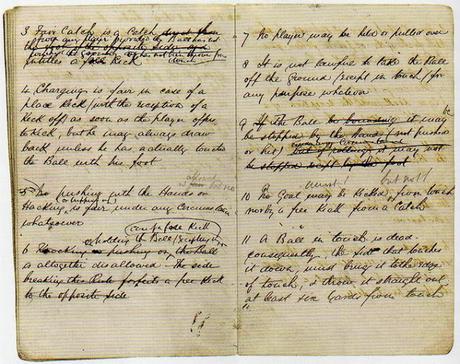 3 Fair Catch is a Catch direct from
from any player provided the Ball has not
the foot of the opposite side and
entitles a free Kick
4 Charging is fair in case of a
place Kick (with the exception of a
Kick off) as soon as the player offers
to Kick, but he may always draw
back unless he has actually touched
the Ball with his foot
5 No pushing with the Hands or
or tripping up
Hacking is fair under any Circumstances
whatsoever
6 Knocking or pushing on the Ball
is altogether disallowed. The side
breaking this Rule forfeits a free Kick
to the opposite side
7 No player may be held or pulled over
8 It is not lawful to take the Ball
off the Ground (except in touch) for
any purpose whatever
9 If the Ball be bouncing it may be
be stopped by the hand, (not pushed
or hit) but if rolling it may not
be stopped except by the foot
must but not
10 No Goal may be Kicked from touch
nor by a free Kick from a Catch
11 A Ball in touch is dead
consequently the side that touches
it down, must bring it to the edge
of touch, & throw it straight out
at least six yards from touch